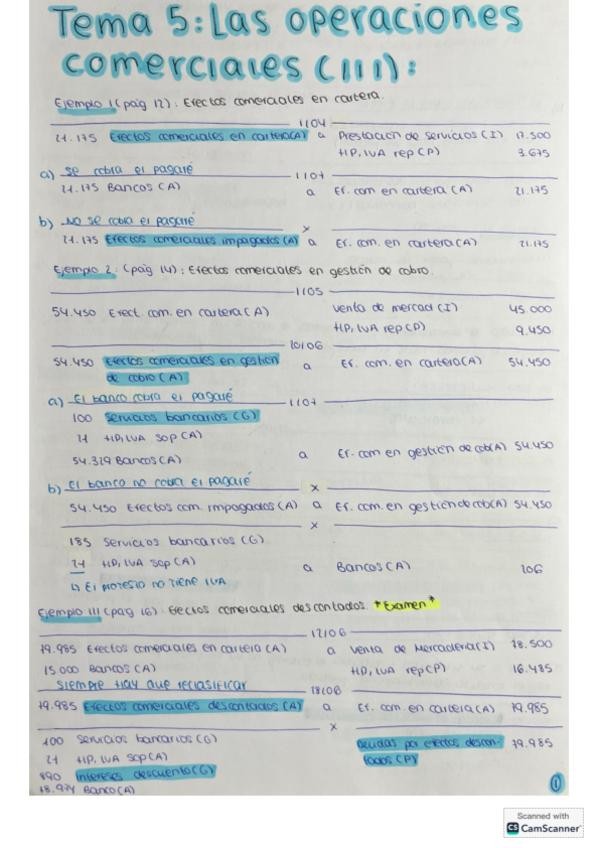 Tema 5: Las operaciones
comerciales (III):
Ejemplo I (pag 12): Efectos comerciales en cartera.
1104
21.175 Efectos comerciales en cartera (A) a Prestación de Servicios (I) 17.500
HP, IVA rep (P) 3.675
a) Se cobra el pagaré
1107
21.175 Bancos (A) a Ef. com en cartera (A) 21.175
b) No se cobra el pagaré
x
21.175 Efectos comerciales impagados (A) a Ef. com. en cartera (A) 21.175
Ejemplo 2: (pág 14): Efectos comerciales en gestión de cobro.
1105
54.450 Efect. com. en cartera (A) Venta de mercad (I) 45.000
HP, IVA rep (P) 9.450
10106
54.450 Efectos comerciales en gestión a Ef. com. en cartera (A) 54.450
de cobro (A)
a) El banco cobra el pagaré
1107
100 Servicios bancarios (G)
21 HP, IVA sop (A)
54.329 Bancos (A) a Ef. com en gestión de cob (A) 54.450
b) El banco no cobra el pagaré
x
54.450 Efectos com. impagados (A) a Ef. com. en gestión de cob (A) 54.450
x
185 Servicios bancarios (G)
21 HP, IVA sop (A) a Bancos (A) 206
↳ El protesto no tiene IVA
Ejemplo III (pag 16): Efectos comerciales descontados. *Examen*
12106
79.985 Efectos comerciales en cartera (A) a Venta de Mercadería (I) 78.500
15.000 Bancos (A) HP, IVA rep (P) 16.485
Siempre hay que reclasificar
18106
79.985 Efectos comerciales descontados (A) a Ef. com. en cartera (A) 79.985
x
100 Servicios bancarios (G) Deudas por efectos descon- 79.985
21 HP, IVA sop (A) tados (P)
890 Intereses descuento (G)
78.974 Banco (A)
1
Scanned with
CS CamScanner